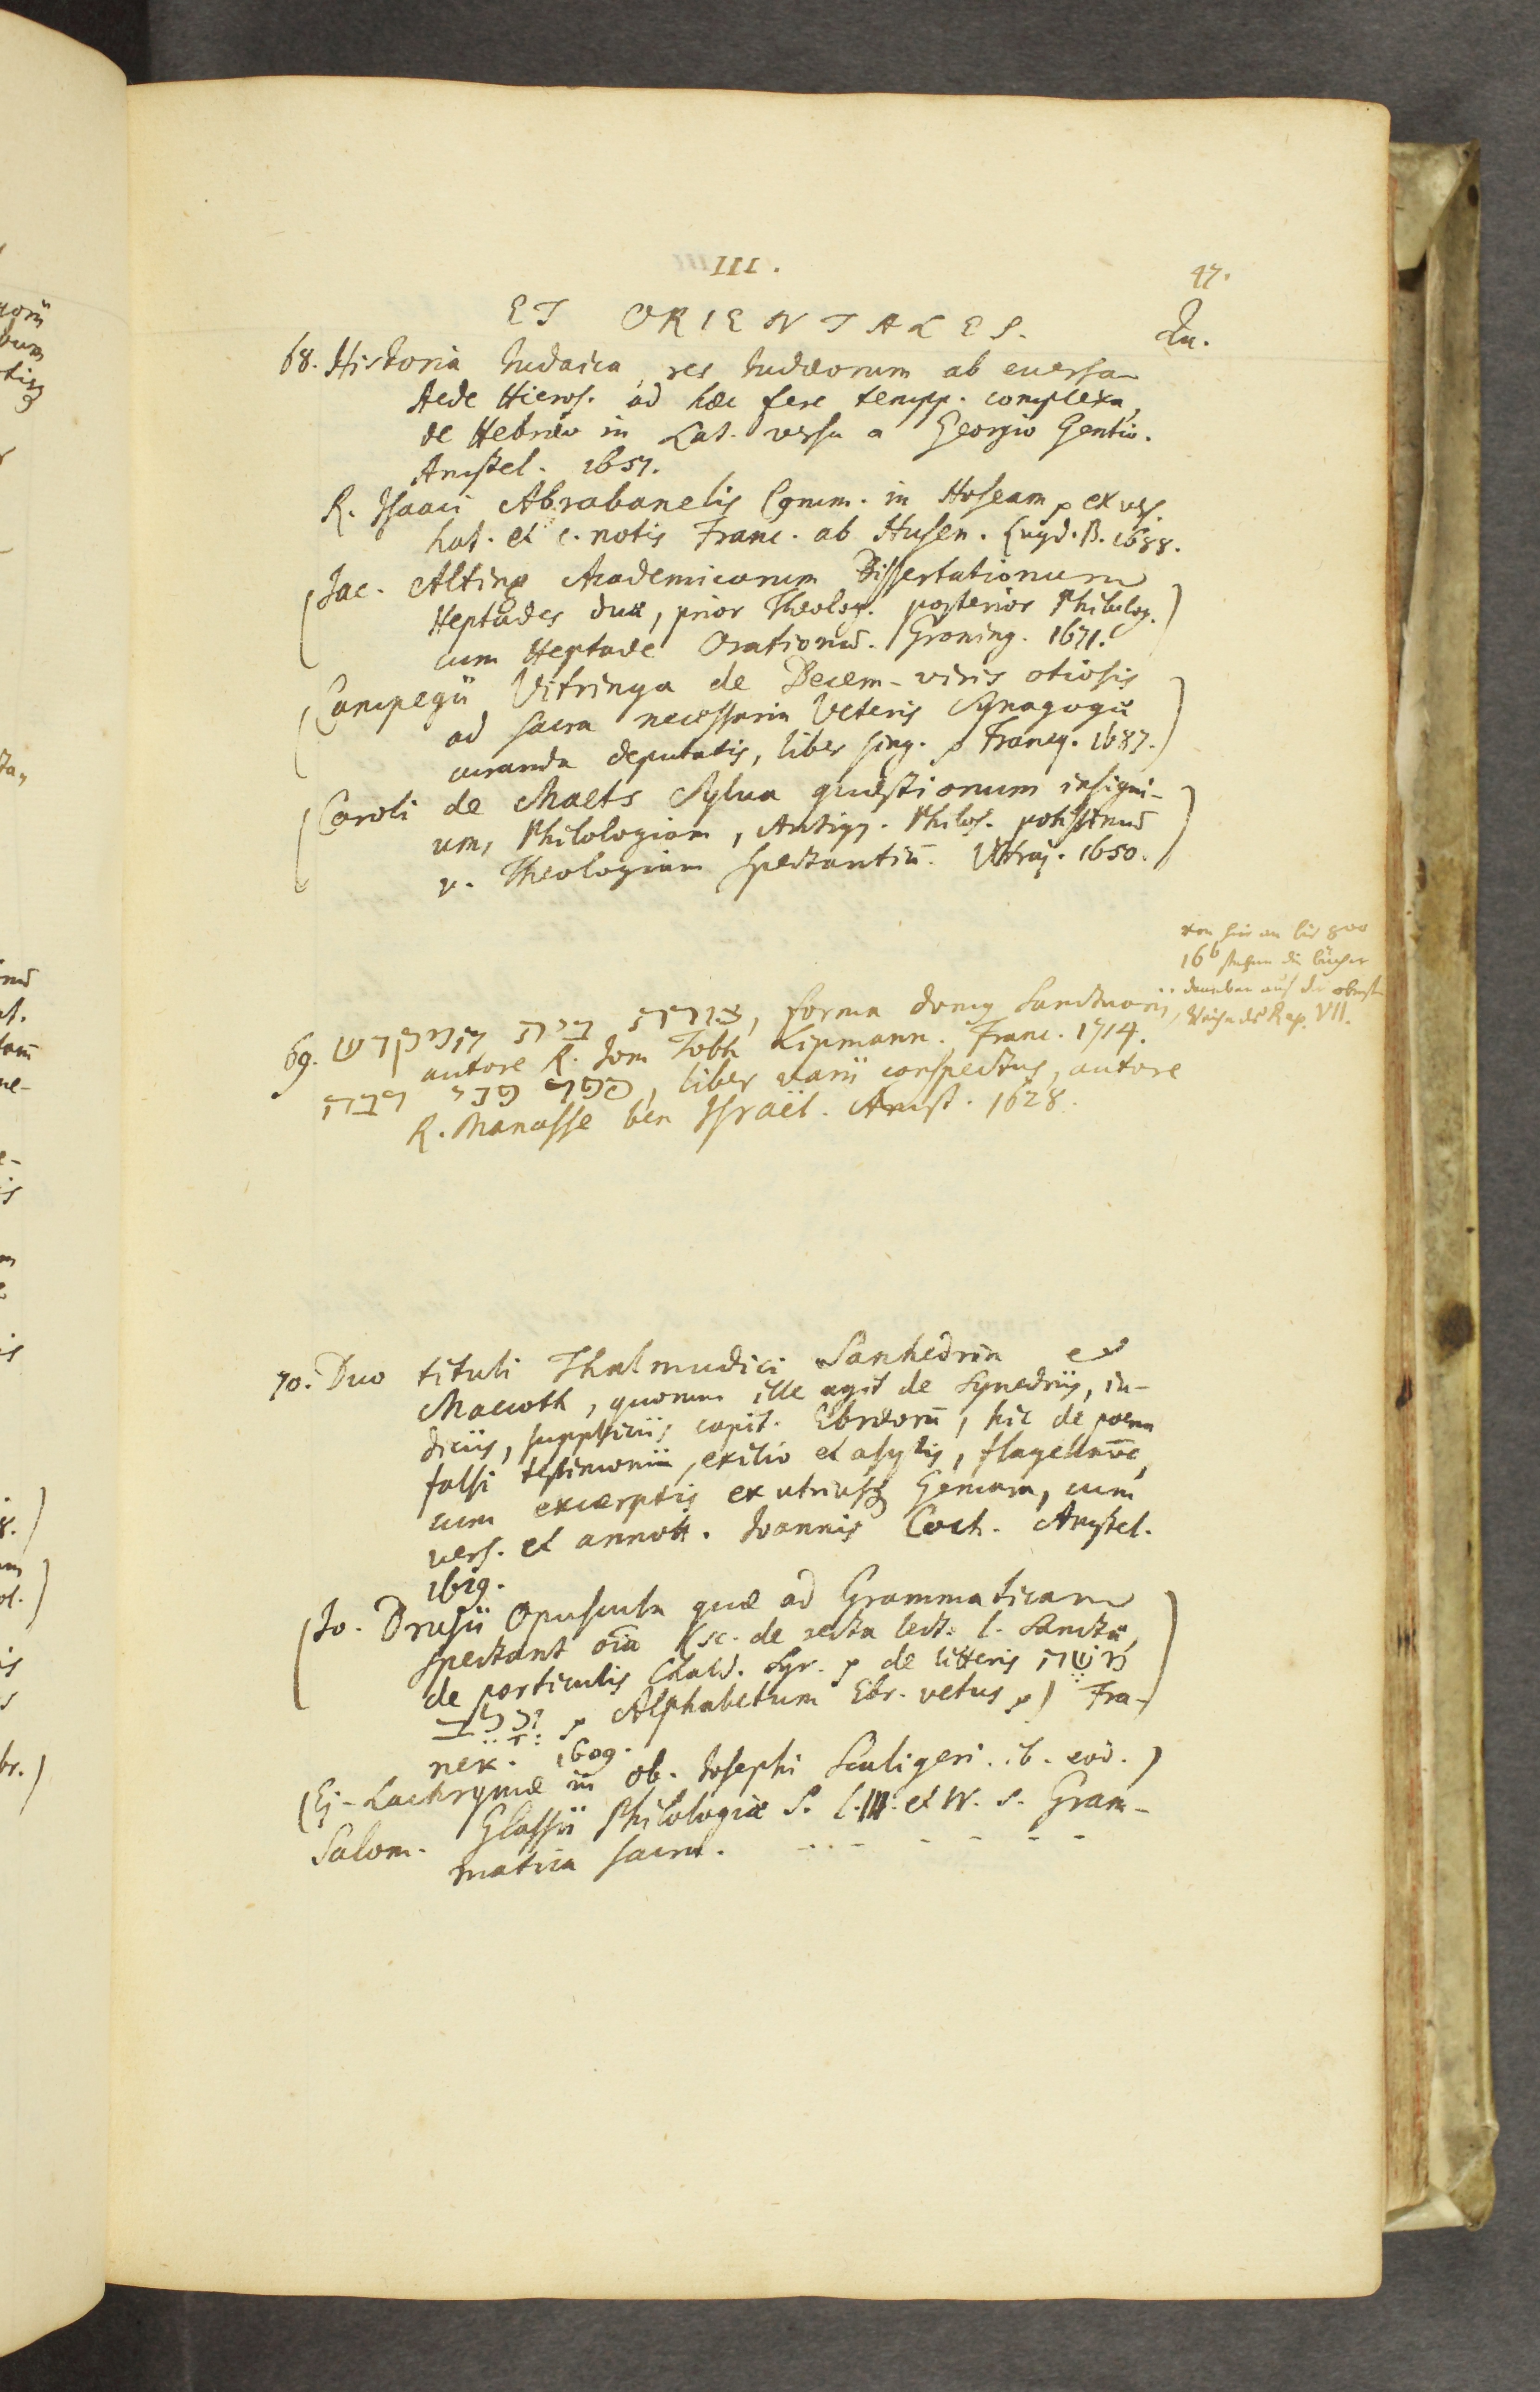 III.
47.
ET ORIENTALES. Qu.
68. Historia Iudaica, res Iudæorum ab euersa
Aede Hieros. ad hæc fere tempp. complexa,
de Hebræo in Lat. versa a Georgio Gentio.
Amstel. 1651.
R. Isaaci Abrabanelis Comm. in Hoseam ex vers.
Lat. et c. notis Franc. ab Husen. Lugd. B. 1688.
(Jac. Alting Academicarum Dissertationum
Heptades duæ, prior Theolog. posterior Philolog.
cum Heptade Orationū. Groning. 1671.)
(Campegii Vitringa de Decem-viris otiosis
ad sacra necessaria Veteris Synagogæ
curanda deputatis, liber sing. Franeq. 1687.)
(Caroli de Maets Sylua quæstionum insigni-
um, Philologiam, Antiqq. Philos. potissimū
v. Theologiam spectantiū. Vltraj. 1650.)
von hier an bis
16b stehen die bücher
daneben auf der oberst
Reihe des Rep. VII.
69. צורת בית המקדש, forma domg Sanctuarii,
autore R. Jom Tobh Lipmann. Franc. 1714.
ספר פני רבה, liber varii conspectus, autore
R. Manasse ben Israël. Amst. 1628.
70. Duo tituli Thalmudici Sanhedrin et
Maccoth, quorum ille agit de Synedriis, iu-
diciis, suppliciis capit. Ebræorū, hic de poena
falsi testimonii, exilio et asylis, flagellatōe,
cum excerptis ex utriusq Gemara, cum
vers. et annott. Ioannis Coch. Amstel.
1629.
(Jo. Drusii Opuscula quæ ad Grammaticam
spectant oīa (sc. de recta lect. l. Sanctæ,
de particulis Chald. Syr. de litteris משה
וכלב Alphabetum Ebr. vetus) Fra-
nek. 1609.)
(Ej. Lachrymæ in ob. Josephi Scaligeri. ib. eod.)
Salom. Glassii Philologiæ S. l. III. et IV. s. Gram-
matica sacra. - - - - - - -